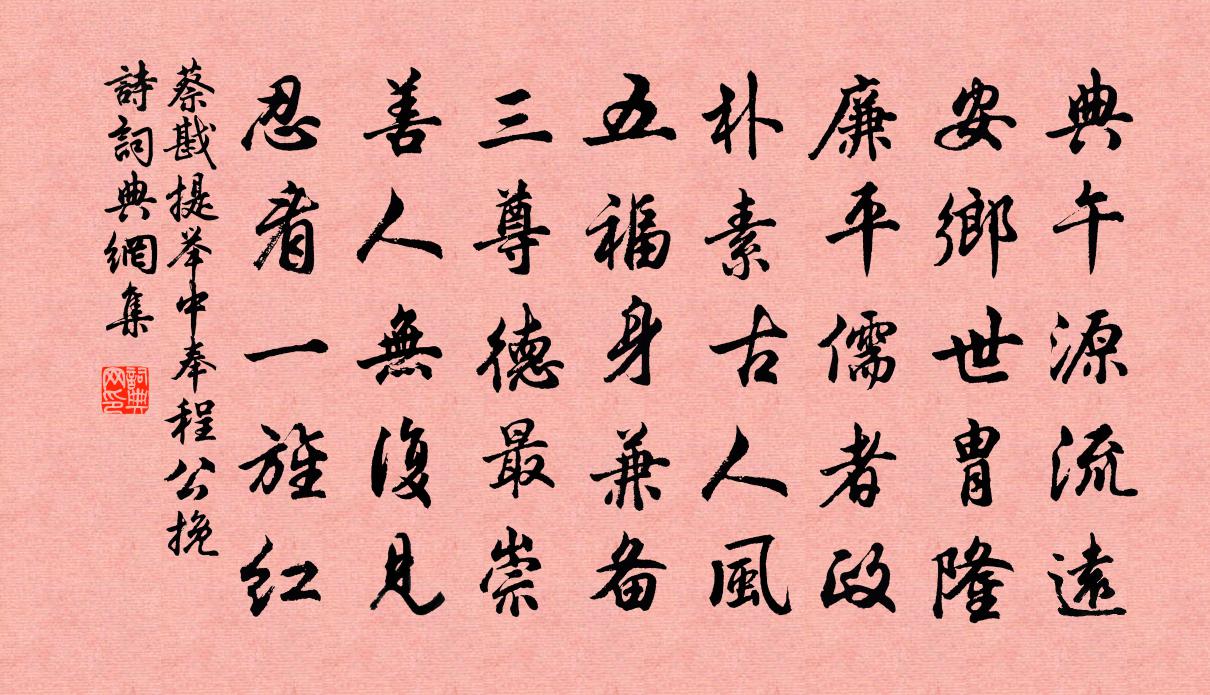 典午源流遠
安鄉世胄隆
廉平儒者政
朴素古人風
五福身兼备
三尊德最崇
善人無復見
忍看一旌红
蔡戡提举中奉程公挽
詩詞典網集
詞典网印